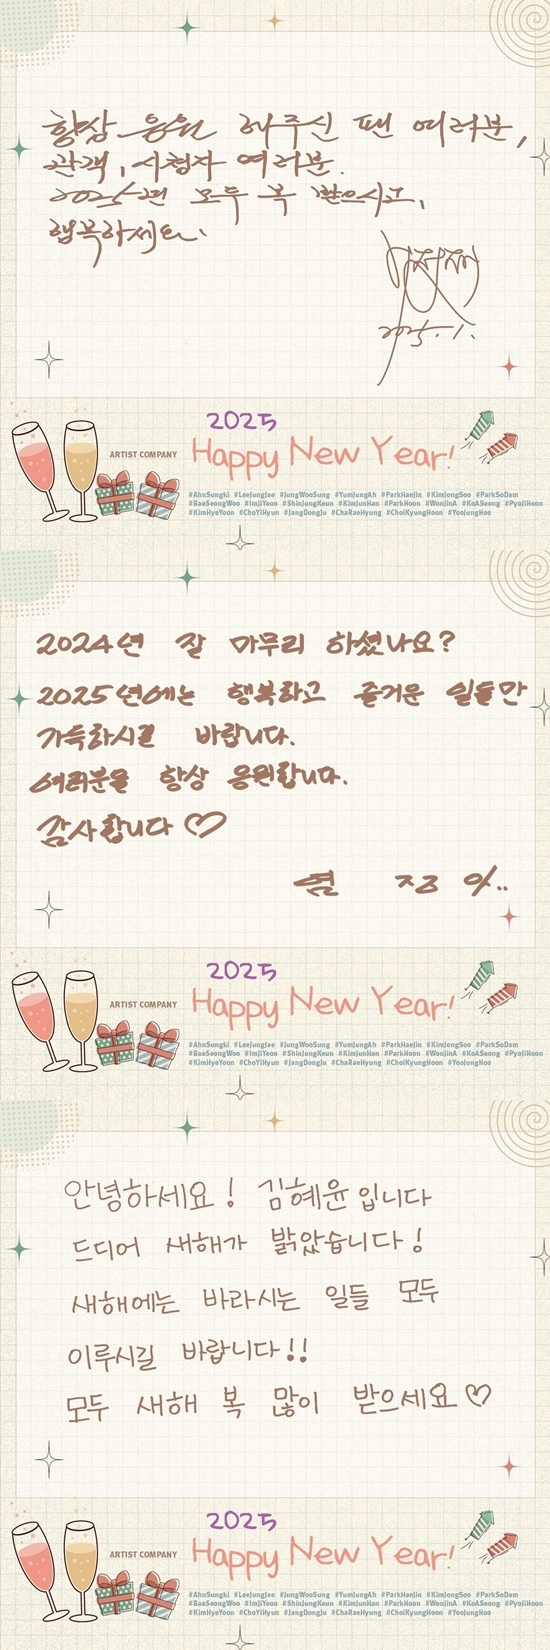 항상 응원 해주신 팬 여러분,
관객, 시청자 여러분.
2025년 모두 복 받으시고,
행복하세요.
2025. 1.
2025
ARTIST COMPANY
Happy New Year!
#AhnSungki #LeeJungJae #JungWooSung #YumJungAh #ParkHaeJin #KimJongSoo #ParkSoDam
#BaeSeongWoo #ImJiYeon #ShinJungKeun #KimJunHan #ParkHoon #WonJinA #KoASeong #PyoJiHoon
#KimHyeYoon #ChoYiHyun #JangDongJu #ChaRaeHyung #ChoiKyungHoon #YooJungHoo
2024년 잘 마무리 하셨나요?
2025년에는 행복하고 즐거운 일들만
가득하시길 바랍니다.
여러분을 항상 응원합니다.
감사합니다 ♡
염 정 아..
2025
ARTIST COMPANY
Happy New Year!
#AhnSungki #LeeJungJae #JungWooSung #YumJungAh #ParkHaeJin #KimJongSoo #ParkSoDam
#BaeSeongWoo #ImJiYeon #ShinJungKeun #KimJunHan #ParkHoon #WonJinA #KoASeong #PyoJiHoon
#KimHyeYoon #ChoYiHyun #JangDongJu #ChaRaeHyung #ChoiKyungHoon #YooJungHoo
안녕하세요! 김혜윤입니다
드디어 새해가 밝았습니다!
새해에는 바라시는 일들 모두
이루시길 바랍니다!!
모두 새해 복 많이 받으세요♡
2025
ARTIST COMPANY
Happy New Year!
#AhnSungki #LeeJungJae #JungWooSung #YumJungAh #ParkHaeJin #KimJongSoo #ParkSoDam
#BaeSeongWoo #ImJiYeon #ShinJungKeun #KimJunHan #ParkHoon #WonJinA #KoASeong #PyoJiHoon
#KimHyeYoon #ChoYiHyun #JangDongJu #ChaRaeHyung #ChoiKyungHoon #YooJungHoo